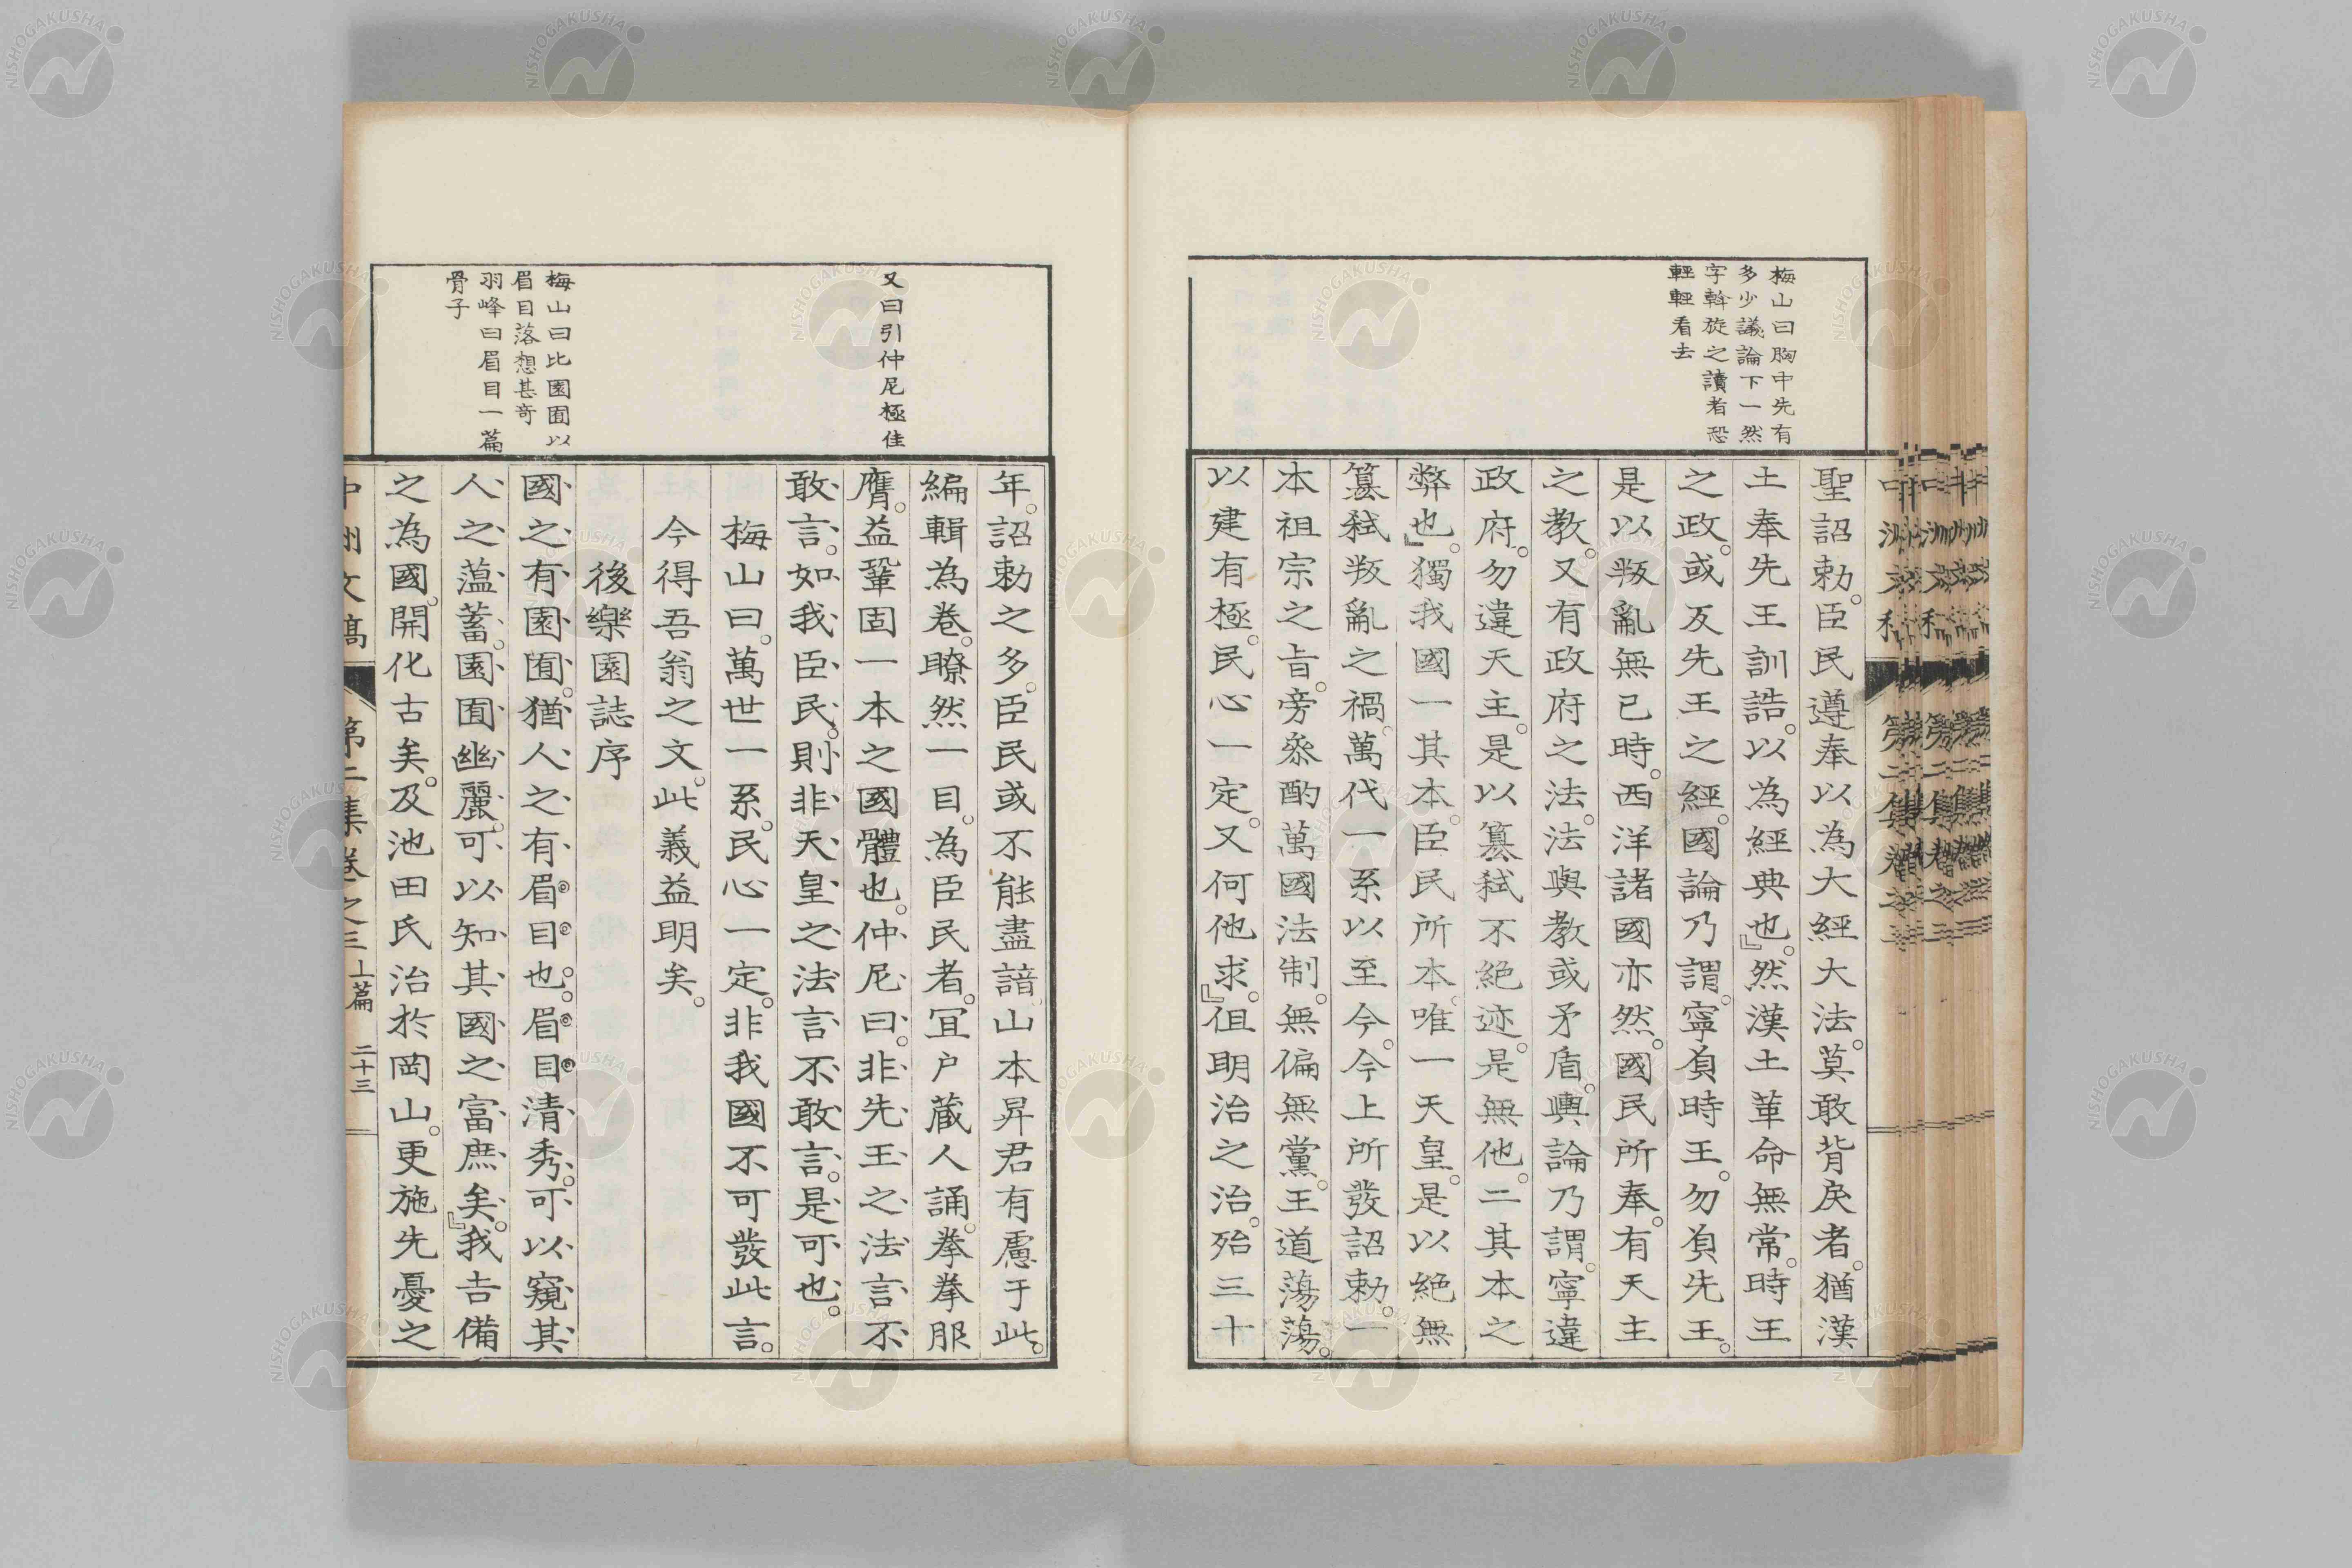 梅山曰胸中先有
多少議論下一然
字斡旋之讀者恐
輕輕看去
聖詔勅。臣民遵奉以為大經大法。莫敢背戾者。猶漢
土奉先王訓誥。以為經典也。』然漢土革命無常。時王
之政。或反先王之經。國論乃謂。寧負時王。勿負先王。
是以叛亂無已時。西洋諸國亦然。國民所奉。有天主
之教。又有政府之法。法與教或矛盾。輿論乃謂。寧違
政府。勿違天主。是以篡弒不絕迹。是無他。二其本之
弊也。』獨我國一其本。臣民所本。唯一天皇。是以絕無
篡弒叛亂之禍。萬代一系以至今。今上所發詔勅。一
本祖宗之旨。旁參酌萬國法制。無偏無黨。王道蕩蕩。
以建有極。民心一定。又何他求。』徂明治之治。殆三十
又曰引仲尼極佳
梅山曰比園囿以
眉目落想甚奇
羽峰曰眉目一篇
骨子
年。詔勅之多。臣民或不能盡諳。山本昇君有慮于此。
編輯為卷。瞭然一目。為臣民者。宜户蔵人誦。拳拳服
膺。益鞏固一本之國體也。仲尼曰。非先王之法言不
敢言。如我臣民。則非天皇之法言不敢言。是可也。
梅山曰。萬世一系。民心一定。非我國不可發此言。
今得吾翁之文。此義益明矣。
後樂園誌序
國之有園囿。猶人之有眉目也。眉目清秀。可以窺其
人之薀蓄。園囿幽麗。可以知其國之富庶矣。』我吉備
之為國。開化古矣。及池田氏治於岡山。更施先憂之
中洲文稿 第二集卷之三 上篇 二十三